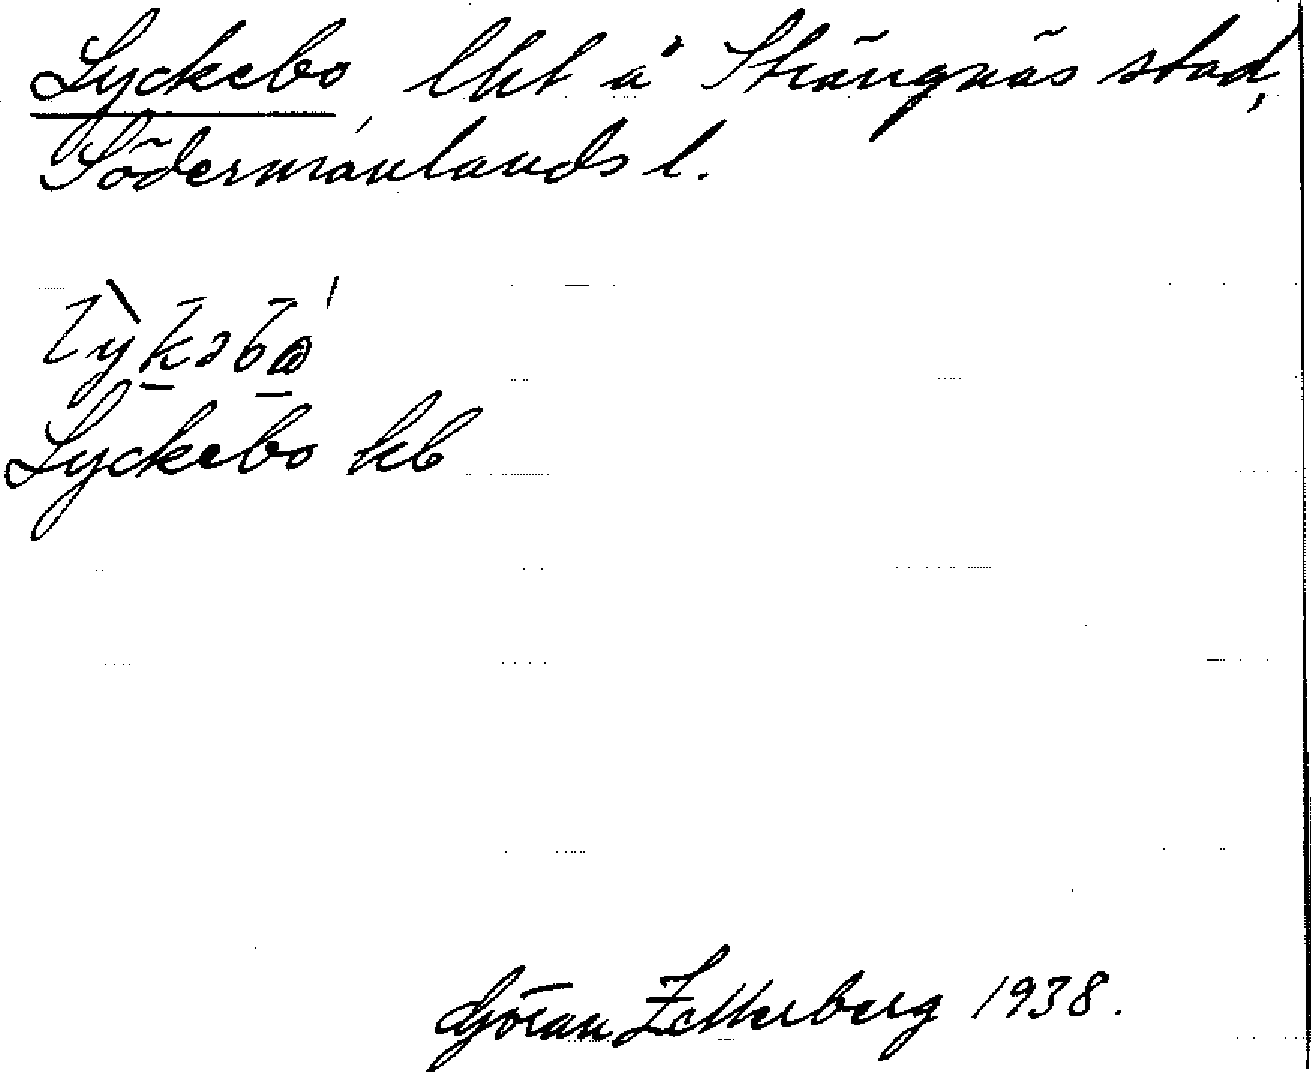 Lyckebo lht å Strängnäs stad,
Södermanlands l.
Lyckebo kb
Göran Zetterberg 1938.